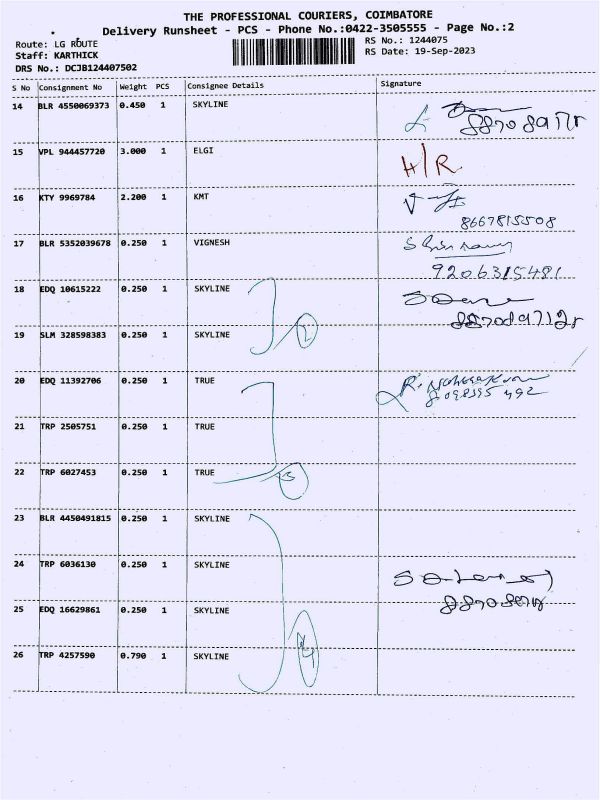 THE PROFESSIONAL COURIERS, COIMBATORE
Delivery Runsheet - PCS - Phone No.:0422-3505555 - Page No.:2
Route: LG ROUTE
RS No.: 1244075
Staff: KARTHICK
RS Date: 19-Sep-2023
DRS No.: DCJB124407502
S No Consignment No Weight PCS Consignee Details Signature
14 BLR 4550069373 0.450 1 SKYLINE
15 VPL 944457720 3.000 1 ELGI H/R
16 KTY 9969784 2.200 1 KMT
8667815508
17 BLR 5352039678 0.250 1 VIGNESH
9206315481
18 EDQ 10615222 0.250 1 SKYLINE
19 SLM 328598383 0.250 1 SKYLINE
2
20 EDQ 11392706 0.250 1 TRUE
21 TRP 2505751 0.250 1 TRUE
22 TRP 6027453 0.250 1 TRUE
23 BLR 4450491815 0.250 1 SKYLINE
24 TRP 6036130 0.250 1 SKYLINE
25 EDQ 16629861 0.250 1 SKYLINE
26 TRP 4257590 0.790 1 SKYLINE
4